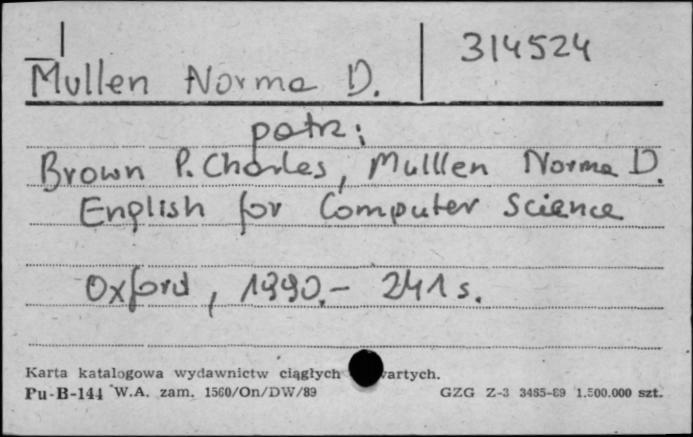 314524
Mullen Norma D.
patrz:
Brown P. Charles, Mulllen Norma D.
English for Computer Science
Oxford, 1990.- 241 s.
Karta katalogowa wydawnictw ciągłych wartych.
Pu-B-144 W.A. zam. 1560/On/DW/89 GZG Z-3 3485-89 1.500.000 szt.